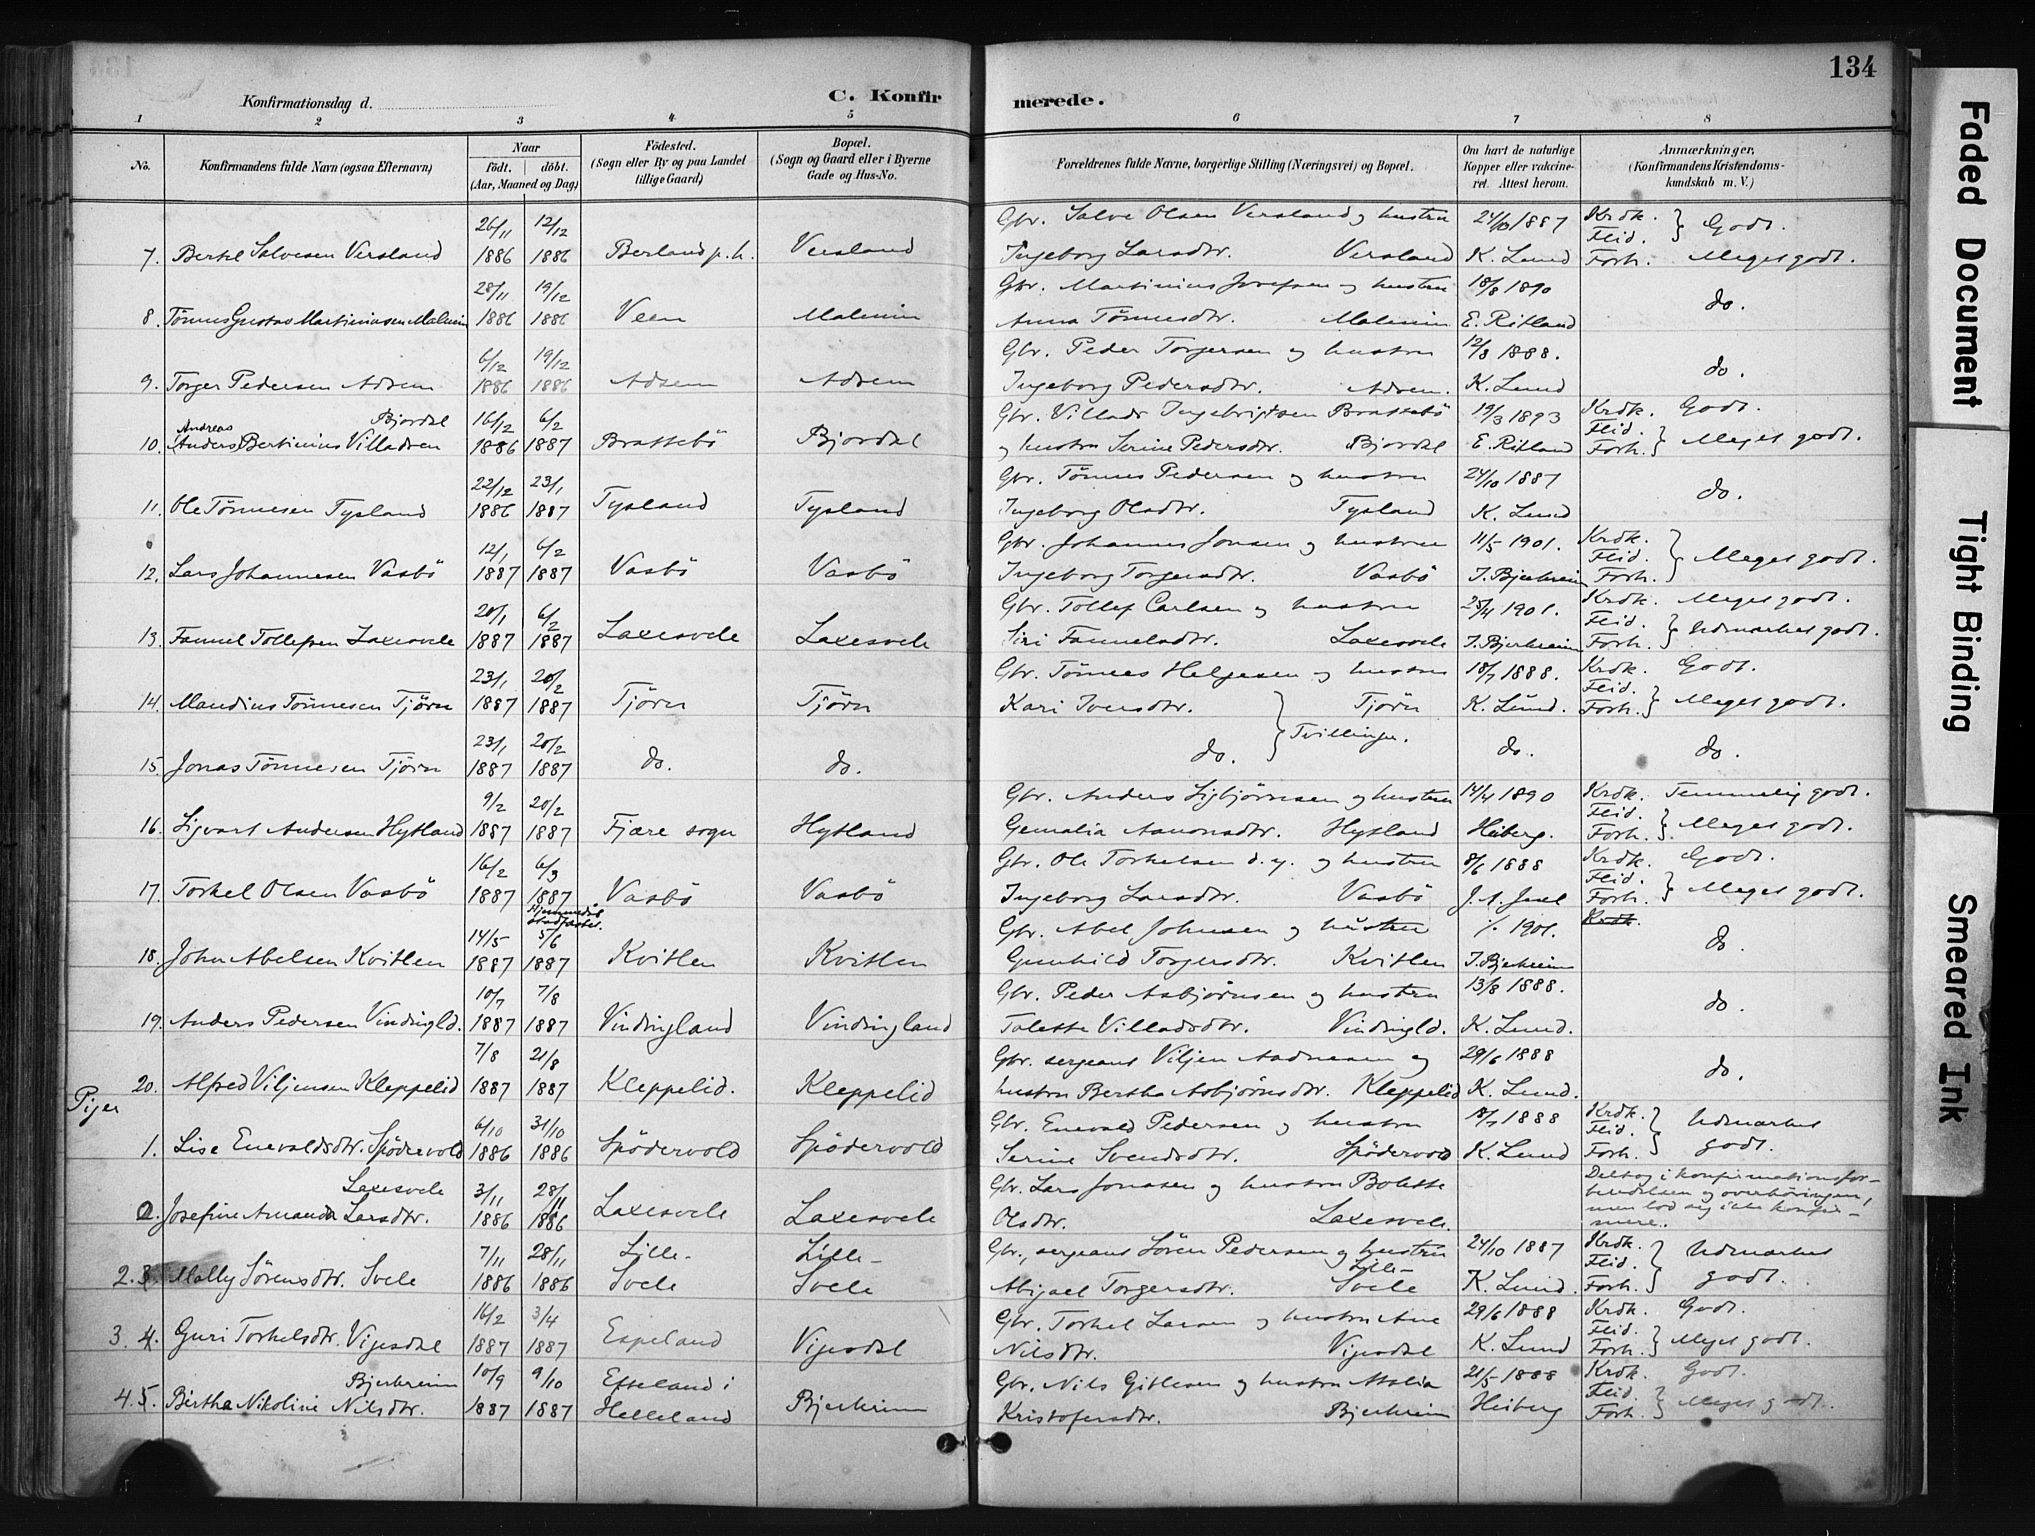 134
Konfirmationsdag d.
C. Konfir
merede.
1 2 3 4 5 6 7 8
No. Konfirmandens fulde Navn (ogsaa Efternavn) Naar Födt. döbt. (Aar, Maaned og Dag) Födested. (Sogn eller By og paa Landet tillige Gaard) Bopæl. (Sogn og Gaard eller i Byerne Gade og Hus-No. Forældrenes fulde Navne, borgerlige Stilling (Næringsvei) og Bopæl. Om havt de naturlige Kopper eller vakcineret. Attest herom. Anmærkninger. (Konfirmandens Kristendomskundskab m. V.)
26/11 12/12 Gbr. Salve Olsen Versland og hustru 24/10 1887 Krdk. Flid. } Godt.
7. Bertel Salvesen Versland 1886 1886 Berland p. h. Versland Ingeborg Larsdtr. Versland K. Lund Forh. Meget godt.
28/11 19/12 Gbr. Martinius Josefsen og hustru 18/8 1890
8. Tønnes Gustav Martiniussen Malmin 1886 1886 Veen Malmin Anna Tønnesdtr. Malmin E. Ritland do.
6/12 19/12 Gbr. Peder Torgersen og hustru 12/3 1888.
9. Torger Pedersen Adsem 1886 1886 Adsem Adsem Ingeborg Pedersdtr. Adsem. K. Lund do.
Andreas Bjordal 16/12 6/2 Gbr. Villads Ingebrigtsen Brattebö 19/3 1893 Krdk. Godt.
10. Anders Bertinius Villadsen 1886 1887 Brattebö Bjordal og hustru Serine Pedersdtr. Bjordal E. Ritland Flid. Forh. } Meget godt.
22/12 23/1 Gbr. Tönnes Pedersen og hustru 24/10 1887
11. Ole Tönnesen Tysland 1886 1887 Tysland Tysland Ingeborg Olsdtr. Tysland K. Lund do.
12/1 6/2 Gbr. Johannes Jonsen og hustru 11/5 1901. Krdk.
12. Lars Johannesen Vasbö 1887 1887 Vasbö Vasbö Ingeborg Torgersdtr. Vasbö T. Bjerkreim Flid. Forh. } Meget godt.
20/1 6/2 Gbr. Tollef Carlsen og hustru 25/4 1901. Krdk. Meget godt.
13. Samuel Tollefsen Laxesvele 1887 1887 Laxesvele Laxesvele Siri Samuelsdtr. Laxesvele T. Bjerkreim Flid. Forh. } Udmærket godt.
23/1 20/2 Gbr. Tönnes Helgesen og hustru 18/7 1888. Krdk. Godt.
14. Mandius Tönnesen Tjörn 1887 1887 Tjörn Tjörn Kari Iversdtr. Tjörn K. Lund. Flid. Forh. } Meget godt.
23/1 20/2 } Tvillinger.
15. Jonas Tönnesen Tjörn 1887 1887 do. do. do. do. do.
9/2 20/2 Gbr. Anders Sigbjörnsen og hustru 14/4 1890 Krdk. Temmelig godt.
16. Sigvart Andersen Hytland 1887 1887 Fjære sogn Hytland Gemalia Aanonsdtr. Hytland Heiberg. Flid. Forh. } Meget godt.
16/2 6/3 Gbr. Ole Torkelsen d. y. og hustru 8/6 1888 Krdk. Godt.
17. Torkel Olsen Vasbö 1887 1887 Vasbö Vasbö Ingeborg Larsdtr. Vasbö J. A. Juel Flid. Forh. } Meget godt.
Hjemmedåb stadfæstet.
14/5 5/6 Gbr. Abel Johnsen og hustru 1901. Krdk.
18. John Abelsen Kvitlen 1887 1887 Kvitlen Kvitlen Gunhild Torgersdtr. Kvitlen T. Bjerkreim do.
10/7 7/8 Gbr. Peder Asbjörnsen og hustru 13/8 1888.
19. Anders Pedersen Vindingld. 1887 1887 Vindingland Vindingland Tolette Villadsdtr. Vindingld. K. Lund. do.
7/8 21/8 Gbr. sergeant Viljen Aadnesen og 29/6 1888
20. Alfred Viljensen Kleppelid 1887 1887 Kleppelid. Kleppelid hustru Bertha Asbjörnsdtr. Kleppelid K. Lund. do.
Piger
6/10 31/10 Gbr. Enevald Pedersen og hustru 18/7 1888 Krdk. Flid. Udmærket
1. Lise Enevaldsdtr. Spödrevold 1886 1886 Spödervold Spödervold Serine Svendsdtr. Spödervold K. Lund Forh. } godt.
Laxesvele 3/11 28/11 Gbr. Lars Jonasen og hustru Bolette Deltog i konfirmationsfor-
2. Josefine Amanda Larsdtr. 1886 1886 Laxesvele Laxesvele Olsdtr. Laxesvele. bredelsen og overhöringen, men lod sig ikke konfir-
mere.
7/11 28/11 Lille- Lille- Gbr., sergeant Sören Pedersen og hustru 24/10 1887 Krdk. Flid. Udmærket
2. 3. Mally Sörensdtr. Svele 1886 1886 Svele Svele Abigael Torgersdtr. Lille- Svele K. Lund. Forh. } godt.
16/2 3/4 Gbr. Torkel Larsen og hustru Ane 29/6 1888 Krdk. Godt.
3. 4. Guri Torkelsdtr. Vigesdal 1887 1887 Espeland Vigesdal Nilsdtr. Vigesdal K. Lund Flid. Forh. } Meget godt.
Bjerkreim 10/9 9/10 Efteland i Gbr. Nils Gitlesen og hustru Atalia 21/5 1888 Krdk. Godt.
4. 5. Bertha Nikoline Nilsdtr. 1887 1887 Helleland Bjerkreim Kristofersdtr. Bjerkreim Heiberg Flid. Forh. } Meget godt.
Faded Document
Tight Binding
Smeared Ink